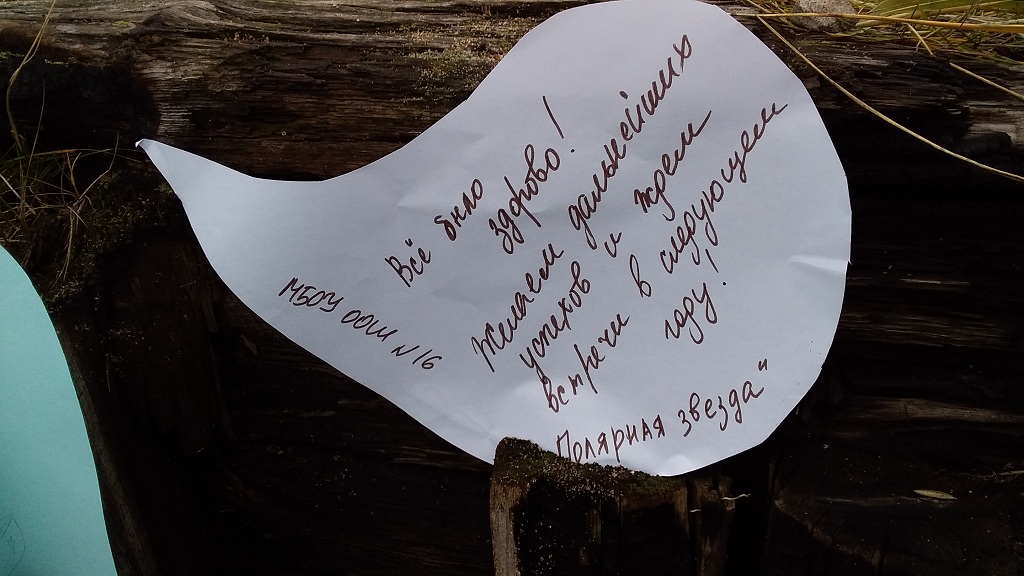 Всё было
здорово!
Желаем дальнейших
успехов и ждем
встречи в следующем
году!
Полярная звезда"
МБОУ ООШ N 16